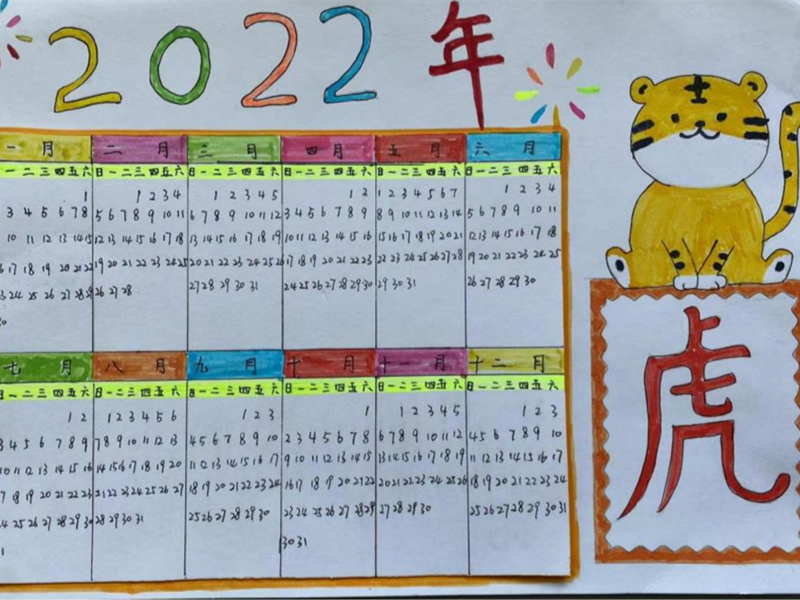 2022年
一月
一二三四五六
1
3 4 5 6 7 8
10 11 12 13 14 15
17 18 19 20 21 22
24 25 26 27 28 29
二月
日一二三四五六
1 2 3 4
5 6 7 8 9 10 11
12 13 14 15 16 17 18
19 20 21 22 23 24 25
26 27 28
三月
日一二三四五六
1 2 3 4 5
6 7 8 9 10 11 12
13 14 15 16 17 18 19
20 21 22 23 24 25 26
27 28 29 30 31
四月
日一二三四五六
1 2
3 4 5 6 7 8 9
10 11 12 13 14 15 16
17 18 19 20 21 22 23
24 25 26 27 28 29 30
五月
日一二三四五六
1 2 3 4 5 6 7
8 9 10 11 12 13 14
15 16 17 18 19 20 21
22 23 24 25 26 27 28
29 30 31
六月
日一二三四五六
1 2 3 4
5 6 7 8 9 10 11
12 13 14 15 16 17 18
19 20 21 22 23 24 25
26 27 28 29 30
七月
一二三四五六
1 2
4 5 6 7 8 9
10 11 12 13 14 15 16
18 19 20 21 22 23
25 26 27 28 29 30
八月
日一二三四五六
1 2 3 4 5 6
7 8 9 10 11 12 13
14 15 16 17 18 19 20
21 22 23 24 25 26 27
28 29 30 31
九月
日一二三四五六
1 2 3
4 5 6 7 8 9 10
11 12 13 14 15 16 17
18 19 20 21 22 23 24
25 26 27 28 29 30
十月
日一二三四五六
1
2 3 4 5 6 7 8
9 10 11 12 13 14 15
16 17 18 19 20 21 22
23 24 25 26 27 28 29
30 31
十一月
日一二三四五六
1 2 3 4 5
6 7 8 9 10 11 12
13 14 15 16 17 18 19
20 21 22 23 24 25 26
27 28 29 30
十二月
日一二三四五六
1 2 3
4 5 6 7 8 9 10
11 12 13 14 15 16 17
18 19 20 21 22 23 24
25 26 27 28 29 30 31
虎